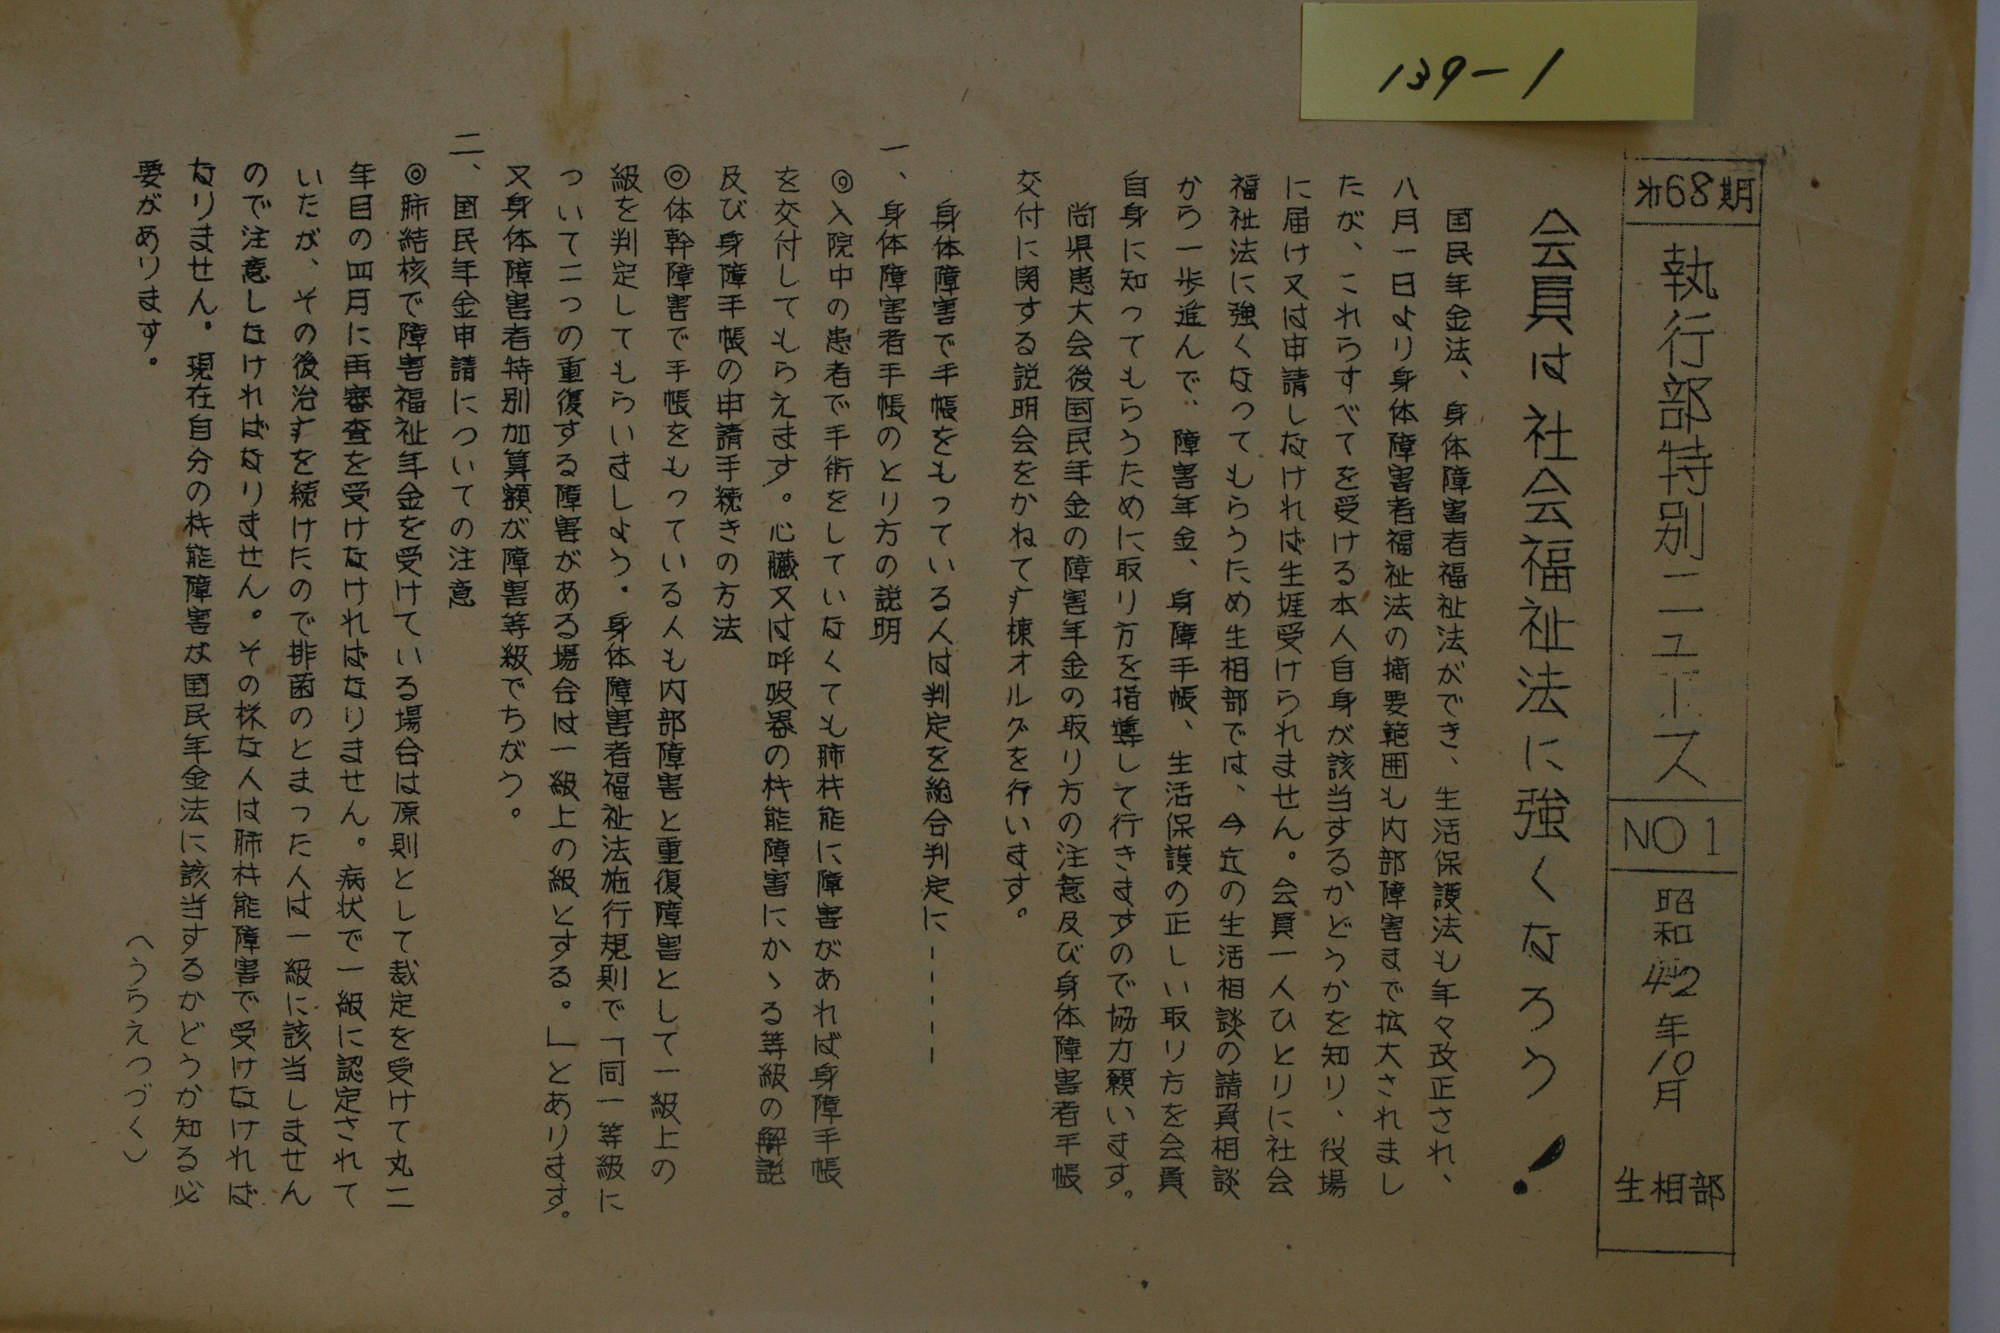 139-1
㐧68期
執行部特別ニュース
NO1
昭和42年10月
生相部
会員は社会福祉法に強くなろう!
国民年金法、身体障害者福祉法ができ、生活保護法も年々改正され、
八月一日より身体障害者福祉法の摘要範囲も内部障害まで拡大されまし
たが、これらすべてを受ける本人自身が該当するかどうかを知り、役場
に届け又は申請しなければ生涯受けられません。会員一人ひとりに社会
福祉法に強くなってもらうため生相部では、今迄の生活相談の請負相談
から一歩進んで、障害年金、身障手帳、生活保護の正しい取り方を会員
自身に知ってもらうために取り方を指導して行きますので協力願います。
尚県患大会後国民年金の障害年金の取り方の注意及び身体障害者手帳
交付に関する説明会をかねて疒棟オルグを行います。
身体障害で手帳をもっている人は判定を総合判定に-----
一、身体障害者手帳のとり方の説明
◎入院中の患者で手術をしていなくても肺枠能に障害があれば身障手帳
を交付してもらえます。心臓又は呼吸器の枠能障害にかゝる等級の解説
及び身障手帳の申請手続きの方法
◎体幹障害で手帳をもっている人も内部障害と重復障害として一級上の
級を判定してもらいましょう。身体障害者福祉法施行規則で「同一等級に
ついて二つの重復する障害がある場合は一級上の級とする。」とあります。
又身体障害者特別加算額が障害等級でちがう。
二、国民年金申請についての注意
◎肺結核で障害福祉年金を受けている場合は原則として裁定を受けて丸二
年目の四月に再審査を受けなければなりません。病状で一級に認定されて
いたが、その後治疒を続けたので排菌のとまった人は一級に該当しません
ので注意しなければなりません。その様な人は肺枠能障害で受けなければ
なりません。現在自分の枠能障害な国民年金法に該当するかどうか知る必
要があります。
（うらえつづく）